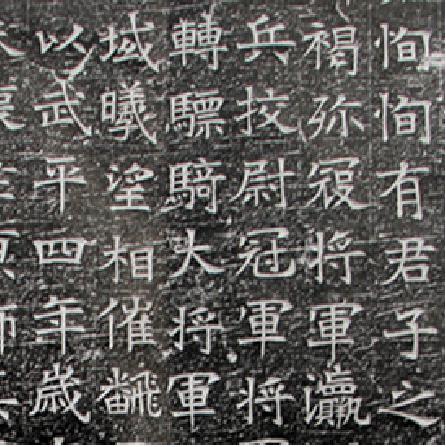 恂恂有君子之
褐殄寇将軍瀛
兵挍尉冠軍将
轉驃騎大将軍
域曦望相催飜
以武平四年歲